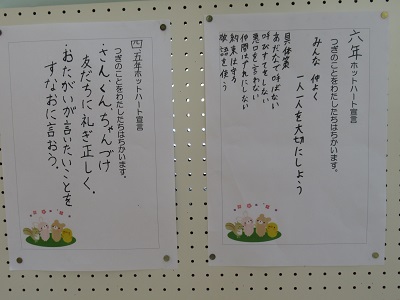 六年 ホットハート宣言
つぎのことをわたしたちはちかいます。
みんな 仲よく
一人一人を大切にしよう
具体策
あだなで呼ばない
呼びすてをしない
悪口を言わない
仲間はずれにしない
約束は守る
敬語を使う
四・五年 ホットハート宣言
つぎのことをわたしたちはちかいます。
・さん、くん、ちゃんづけ
友だちに礼ぎ正しく。
・おたがいが言いたいことを
すなおに言おう。